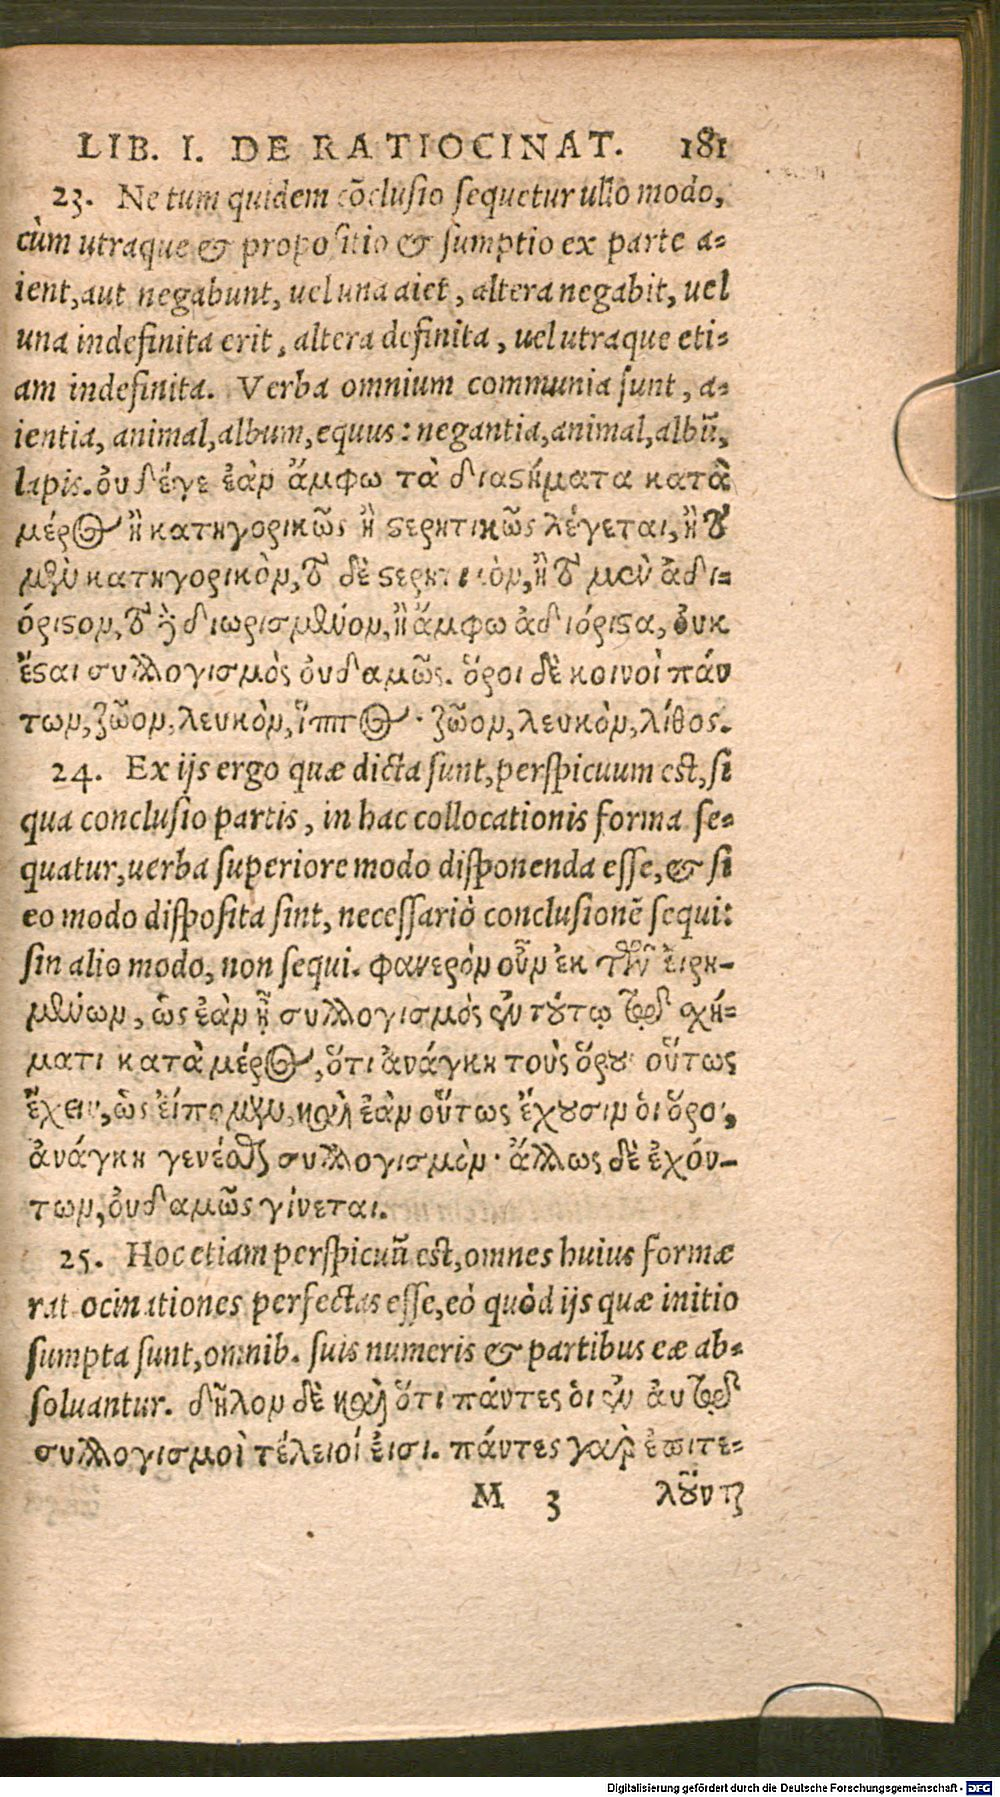 LIB. I. DE RATIOCINAT. 181
23. Ne tum quidem cōclusio sequetur ullo modo,
cùm utraque & propositio & sumptio ex parte a-
ient, aut negabunt, uel una aiet, altera negabit, uel
una indefinita erit, altera definita, uel utraque eti-
am indefinita. Verba omnium communia sunt, a-
ientia, animal, album, equus: negantia, animal, albū,
lapis. οὐδέγε ἐὰν ἄμφω τὰ διαστήματα κατὰ
μέρος ἢ κατηγορικῶς ἢ στερητικῶς λέγεται, ἢ τὸ
μὲν κατηγορικὸν, τὸ δὲ στερητικὸν, ἢ τὸ μὲν ἀδι-
όριστον, τὸ δὲ διωρισμένον, ἢ ἄμφω ἀδιόριστα, οὐκ
ἔσται συλλογισμὸς οὐδαμῶς. ὅροι δὲ κοινοὶ πάν
των, ζῶον, λευκὸν, ἵππος· ζῶον, λευκὸν, λίθος.
24. Ex ijs ergo quæ dicta sunt, perspicuum est, si
qua conclusio partis, in hac collocationis forma se-
quatur, uerba superiore modo disponenda esse, & si
eo modo disposita sint, necessariò conclusionē sequi:
sin alio modo, non sequi. φανερὸν οὖν ἐκ τῶν εἰρη-
μένων, ὡς ἐὰν ᾖ συλλογισμὸς ἐν τούτῳ τῷ σχή-
ματι κατὰ μέρος, ὅτι ἀνάγκη τοὺς ὅρους οὕτως
ἔχειν, ὡς εἴπομεν, καὶ ἐὰν οὕτως ἔχουσιν οἱ ὅροι,
ἀνάγκη γενέσθαι συλλογισμὸν· ἄλλως δὲ ἐχόν-
των, οὐδαμῶς γίνεται.
25. Hoc etiam perspicuū est, omnes huius formæ
ratiocinationes perfectas esse, eò quòd ijs quæ initio
sumpta sunt, omnib. suis numeris & partibus eæ ab-
soluantur. δῆλον δὲ καὶ ὅτι πάντες οἱ ἐν αὐτῷ
συλλογισμοὶ τέλειοί εἰσι. πάντες γαρ ἐπιτε-
M 3 λοῦνται
Digitalisierung gefördert durch die Deutsche Forschungsgemeinschaft - DFG